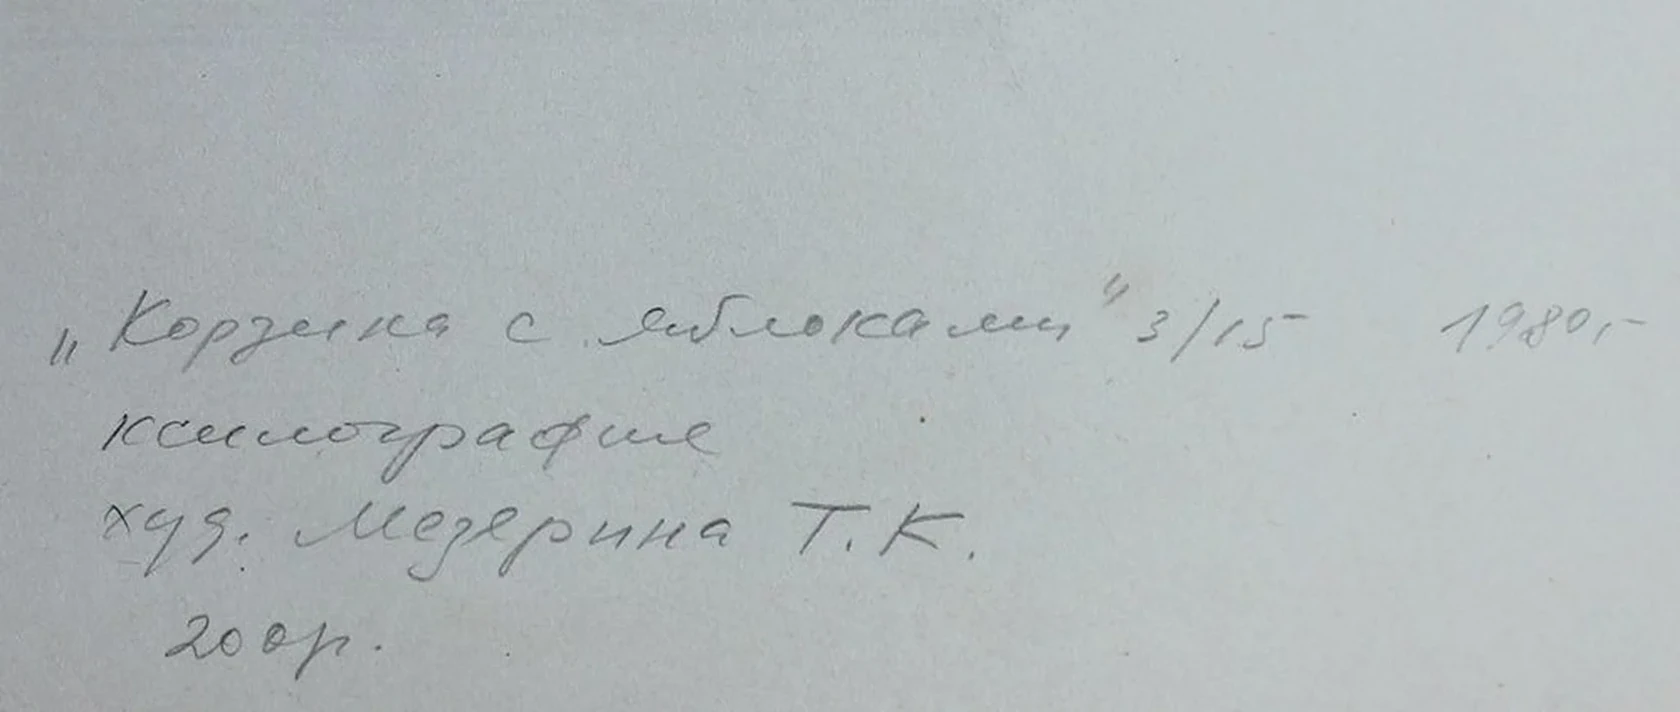 „Корзина с яблоками" 3/15 1980,-
ксилография
худ. Мезерина Т.К.
200р.